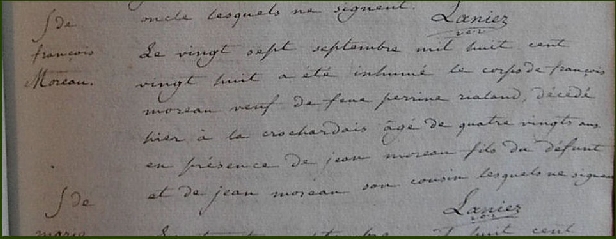 oncle lesquels ne signent. Laniez
S de
françois
Moreau.
Le vingt sept septembre mil huit cent
vingt huit a été inhumé le corps de françois
moreau veuf de feue perrine rialand, décédé
hier à la crochardais âgé de quatre vingts ans
en présence de jean moreau fils du défunt
et de jean moreau son cousin lesquels ne signent
Laniez
S de
marie
huit cent